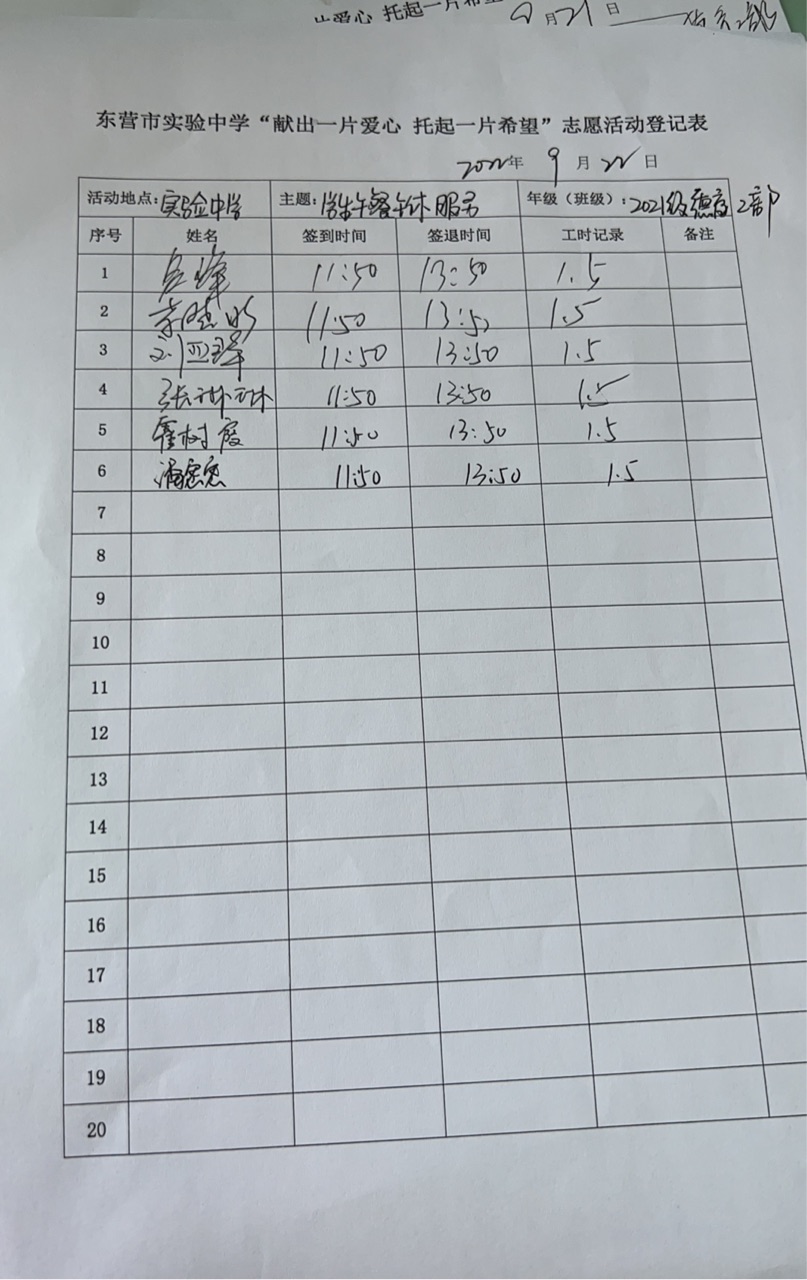 爱心 托起一片希
9月21日
东营市实验中学“献出一片爱心 托起一片希望”志愿活动登记表
2022年 9月22日
活动地点：实验中学 主题：学生午餐午休服务 年级（班级）：2021级惠友2部
序号 姓名 签到时间 签退时间 工时记录 备注
1 11:50 13:50 1.5
2 11:50 13:50 1.5
3 11:50 13:50 1.5
4 张琳琳 11:50 13:50 1.5
5 霍树霞 11:50 13:50 1.5
6 潘密密 11:50 13:50 1.5
7
8
9
10
11
12
13
14
15
16
17
18
19
20